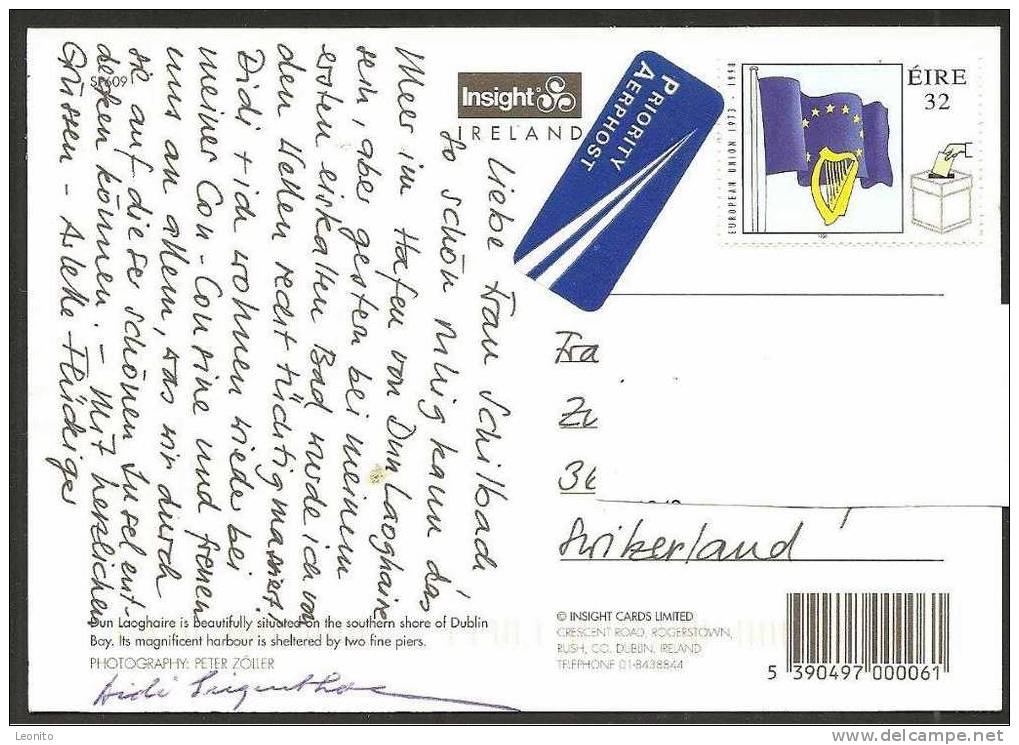 Liebe Frau Schilbach
so schön ruhig kann das
Meer im Hafen von Dun Laoghaire
sein, aber gestern bei meinem
ersten eiskalten Bad wurde ich von
den Wellen recht tüchtig massiert!
Didi + ich wohnen wieder bei
meiner Cou-Cousine und freuen
uns an allem, was wir durch
sie auf dieser schönen Insel ent-
decken können. – Mit herzlichen
Grüssen – Arlette Flückiger
SP609
Insight
IRELAND
PRIORITY
AERPHOST
EUROPEAN UNION 1973 - 1998
ÉIRE
32
1998
Fra
Zu
36
Switzerland
Dun Laoghaire is beautifully situated on the southern shore of Dublin
Bay. Its magnificent harbour is sheltered by two fine piers.
PHOTOGRAPHY: PETER ZÖLLER
© INSIGHT CARDS LIMITED
CRESCENT ROAD, ROGERSTOWN,
RUSH, CO. DUBLIN, IRELAND
TELEPHONE 01-8438844
5 390497 000061
Leonito
www.delcampe.net